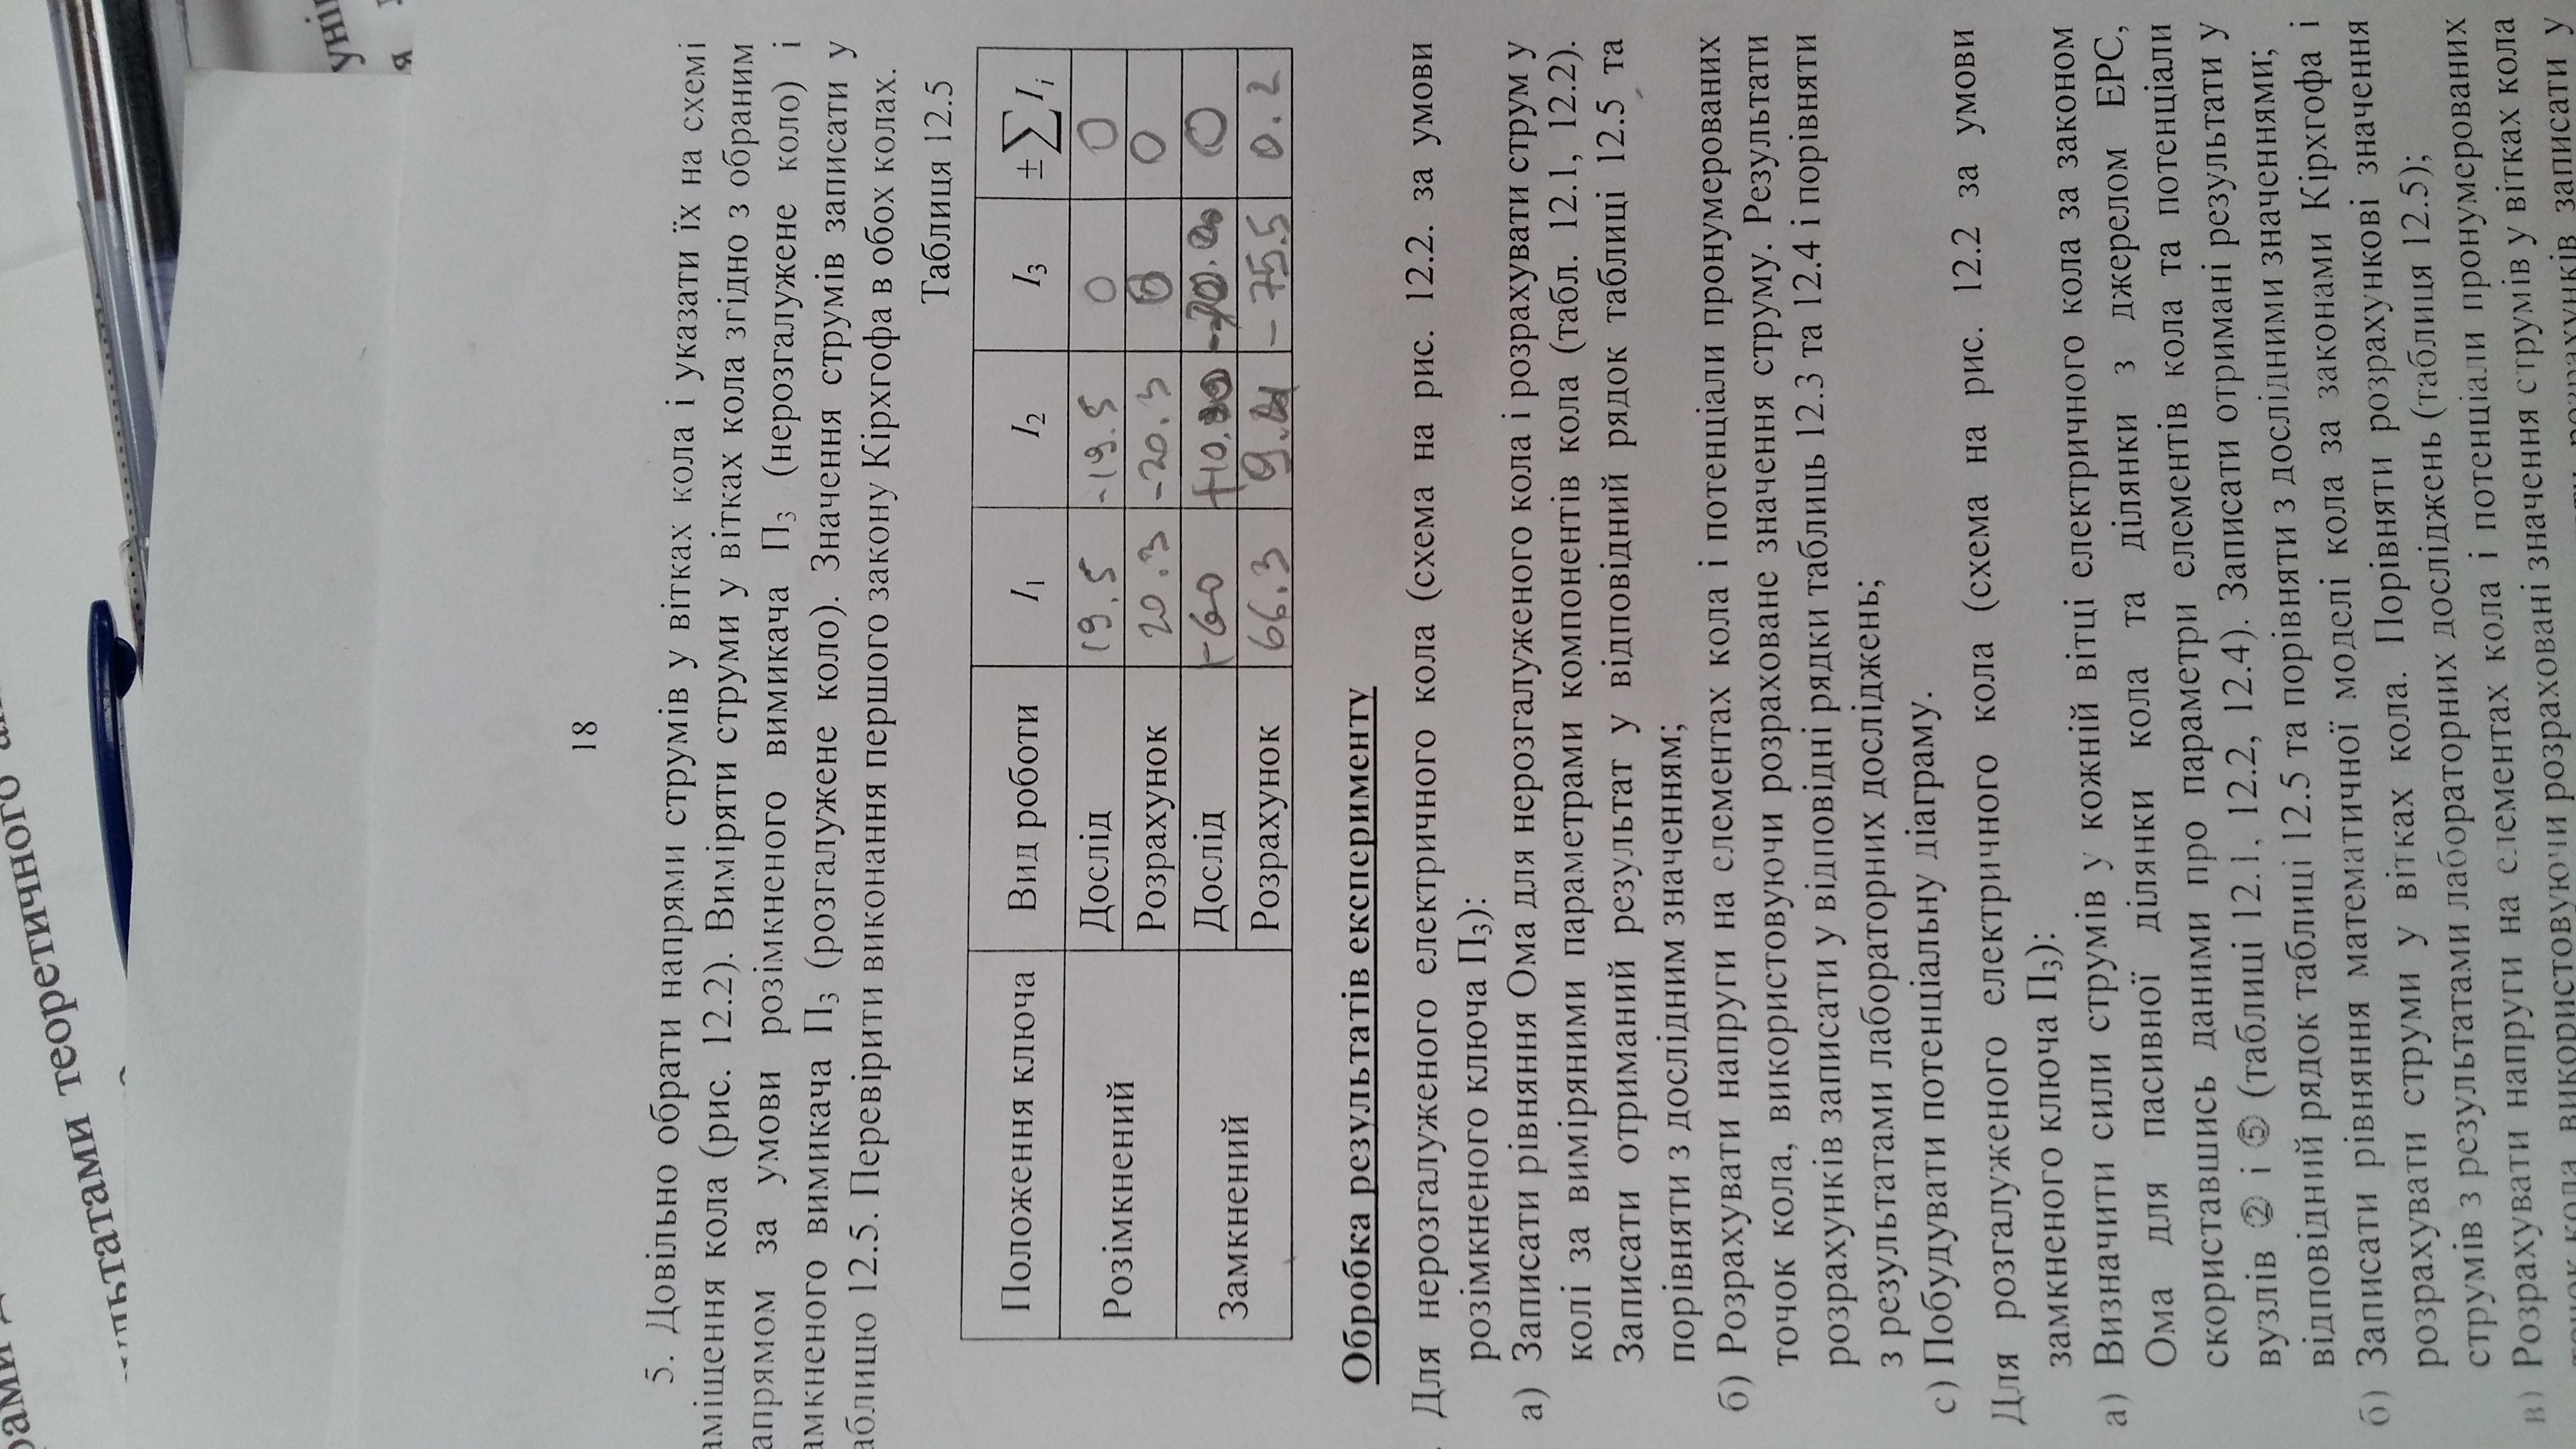 теоретичного
18
5. Довільно обрати напрями струмів у вітках кола і указати їх на схемі
аміщення кола (рис. 12.2). Виміряти струми у вітках кола згідно з обраним
апрямом за умови розімкненого вимикача П₃ (нерозгалужене коло) і
амкненого вимикача П₃ (розгалужене коло). Значення струмів записати у
аблицю 12.5. Перевірити виконання першого закону Кірхгофа в обох колах.
Таблиця 12.5
Положення ключа Вид роботи I₁ I₂ I₃ ±∑Iᵢ
Розімкнений Дослід 19.5 -19.5 0 0
Розрахунок 20.3 -20.3 0 0
Замкнений Дослід -60 0
Розрахунок 66.3 - 75.5 0.2
Обробка результатів експерименту
Для нерозгалуженого електричного кола (схема на рис. 12.2. за умови
розімкненого ключа П₃):
а) Записати рівняння Ома для нерозгалуженого кола і розрахувати струм у
колі за виміряними параметрами компонентів кола (табл. 12.1, 12.2).
Записати отриманий результат у відповідний рядок таблиці 12.5 та
порівняти з дослідним значенням;
б) Розрахувати напруги на елементах кола і потенціали пронумерованих
точок кола, використовуючи розраховане значення струму. Результати
розрахунків записати у відповідні рядки таблиць 12.3 та 12.4 і порівняти
з результатами лабораторних досліджень;
с) Побудувати потенціальну діаграму.
Для розгалуженого електричного кола (схема на рис. 12.2 за умови
замкненого ключа П₃):
а) Визначити сили струмів у кожній вітці електричного кола за законом
Ома для пасивної ділянки кола та ділянки з джерелом ЕРС,
скориставшись даними про параметри елементів кола та потенціали
вузлів ② і ⑤ (таблиці 12.1, 12.2, 12.4). Записати отримані результати у
відповідний рядок таблиці 12.5 та порівняти з дослідними значеннями;
б) Записати рівняння математичної моделі кола за законами Кірхгофа і
розрахувати струми у вітках кола. Порівняти розрахункові значення
струмів з результатами лабораторних досліджень (таблиця 12.5);
в) Розрахувати напруги на елементах кола і потенціали пронумерованих
точок кола, використовуючи розраховані значення струмів у вітках кола
розрахунків записати у